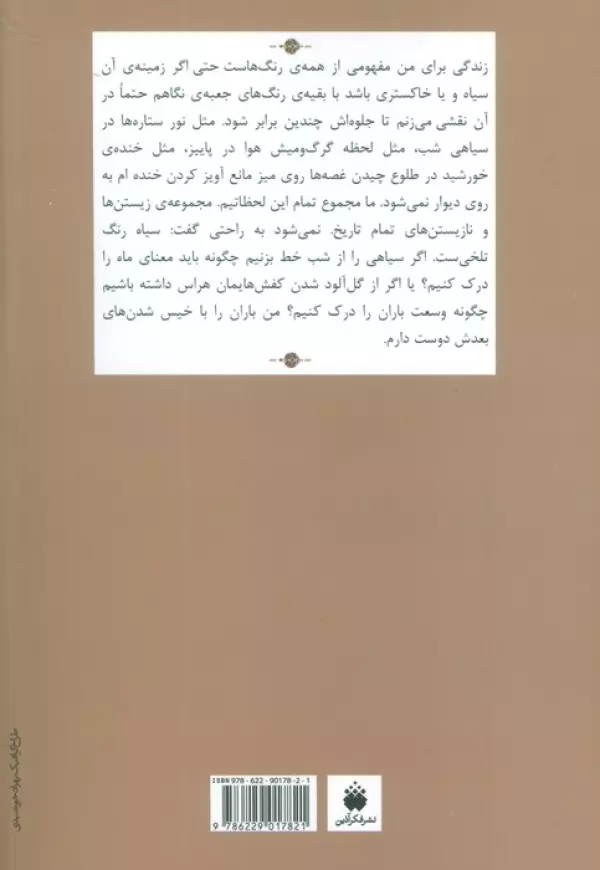 زندگی برای من مفهومی از همه‌ی رنگ‌هاست حتی اگر زمینه‌ی آن
سیاه و یا خاکستری باشد با بقیه‌ی رنگ‌های جعبه‌ی نگاهم حتماً در
آن نقشی می‌زنم تا جلوه‌اش چندین برابر شود. مثل نور ستاره‌ها در
سیاهی شب، مثل لحظه گرگ‌ومیش هوا در پاییز، مثل خنده‌ی
خورشید در طلوع چیدن غصه‌ها روی میز مانع آویز کردن خنده ام به
روی دیوار نمی‌شود. ما مجموع تمام این لحظاتیم. مجموعه‌ی زیستن‌ها
و نازیستن‌های تمام تاریخ. نمی‌شود به راحتی گفت: سیاه رنگ
تلخی‌ست. اگر سیاهی را از شب خط بزنیم چگونه باید معنای ماه را
درک کنیم؟ یا اگر از گل‌آلود شدن کفش‌هایمان هراس داشته باشیم
چگونه وسعت باران را درک کنیم؟ من باران را با خیس شدن‌های
بعدش دوست دارم.
ISBN 978-622-90178-2-1
9 786229 017821
نشر فکر آذین